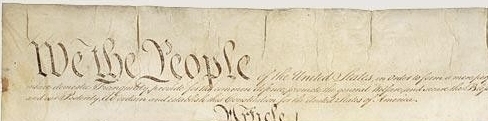 We the People of the United States, in Order to form a more perf
insure domestic Tranquility, provide for the common defence, promote the general Welfare, and secure the Bles
and our Posterity, do ordain and establish this Constitution for the United States of America.
Article I